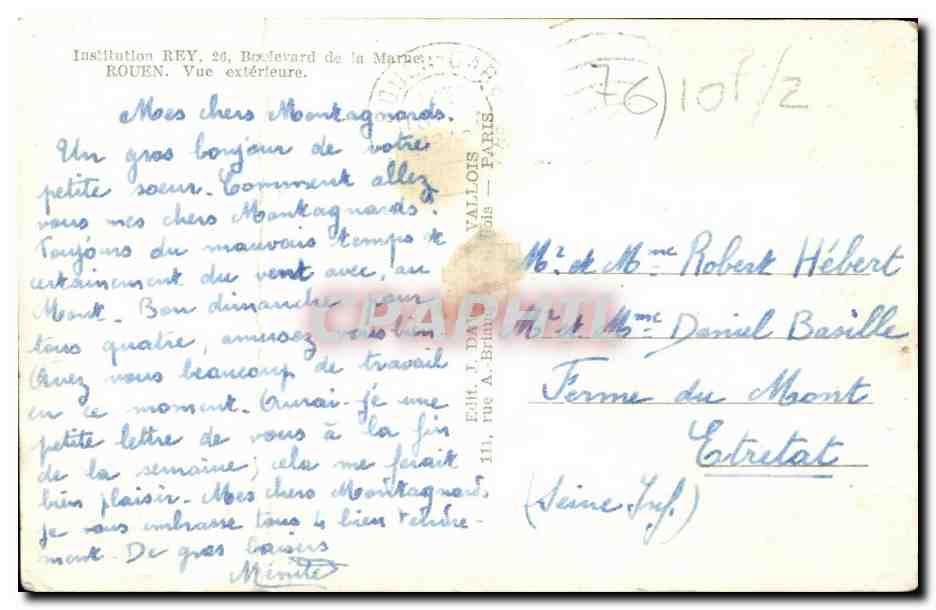 Institution REY, 26, Boulevard de la Marne
ROUEN. Vue extérieure.
76) 10f/2
Mes chers Montagnards.
Un gros bonjour de votre
petite soeur. Comment allez
vous mes chers Montagnards.
Toujours du mauvais temps et
certainement du vent avec, au
Mont. Bon dimanche pour
tous quatre, amusez vous bien
Avez vous beaucoup de travail
en ce moment. Aurai-je une
petite lettre de vous à la fin
de la semaine; cela me ferait
bien plaisir. Mes chers Montagnards
je vous embrasse tous 4 bien tendre-
ment. De gros baisers
Edit. J. DAV VALLOIS
111, rue A.-Brian ois — PARIS
Mr et Mme Robert Hébert
Mr et Mme Daniel Basille
Ferme du Mont
Etretat
(Seine Inf.)
CPARHTI